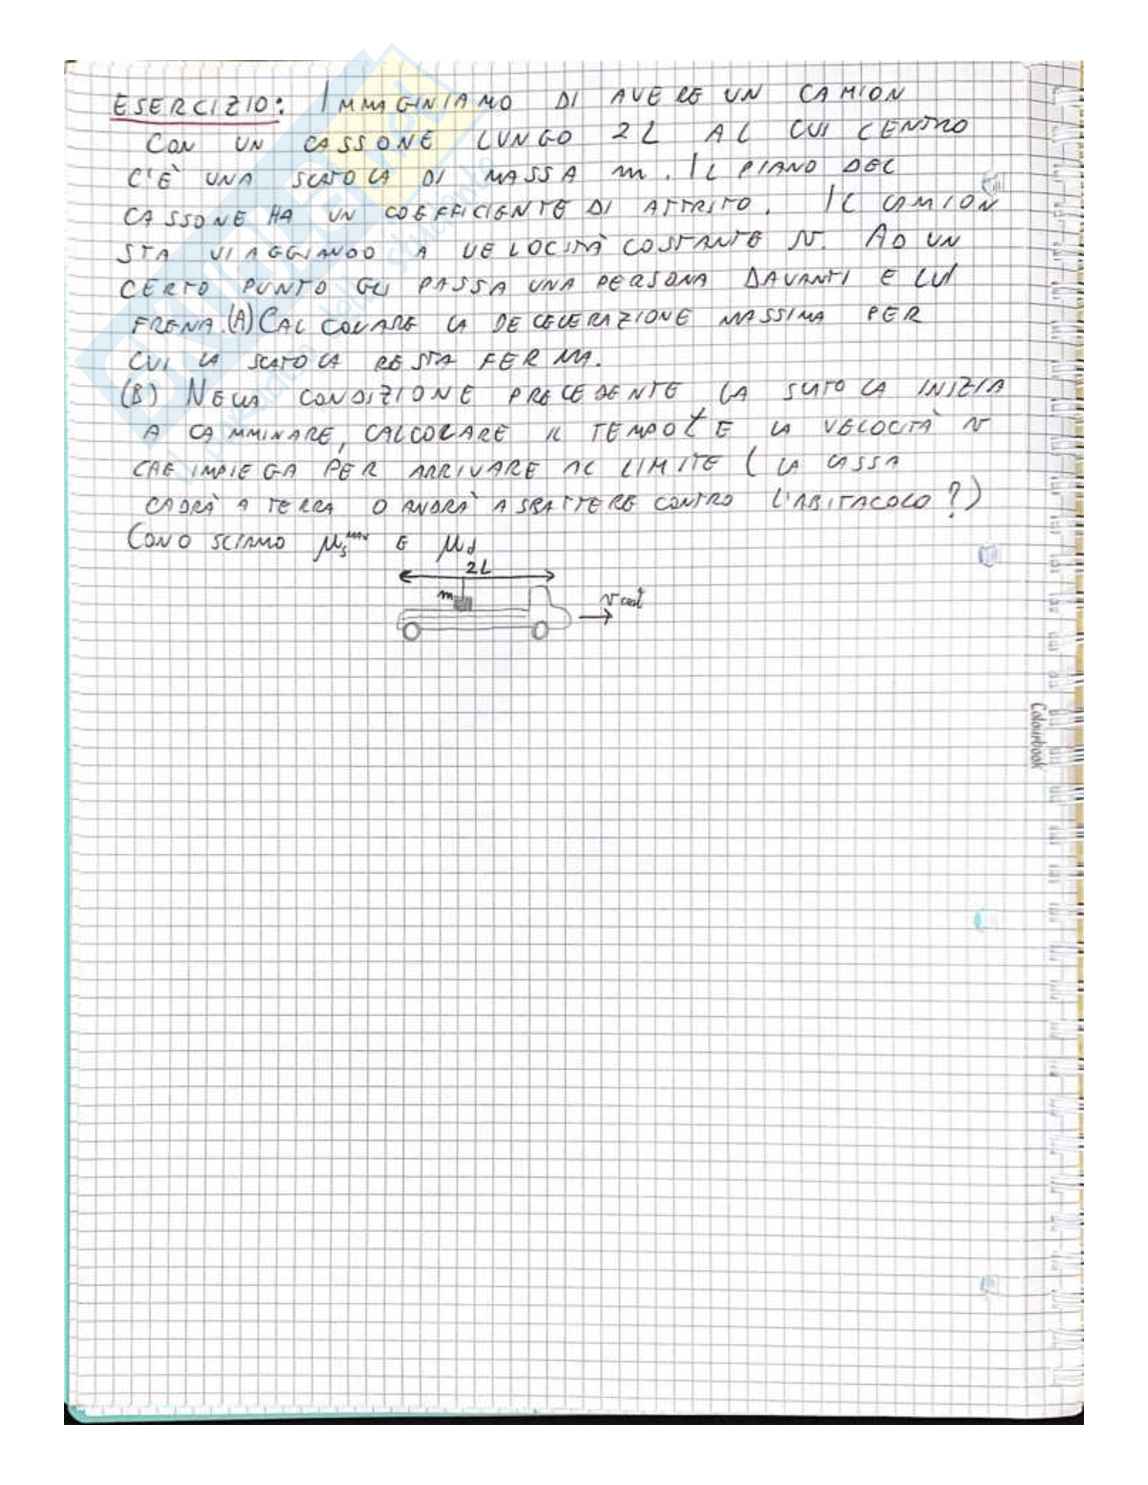 ESERCIZIO: IMMAGINIAMO DI AVERE UN CAMION
CON UN CASSONE LUNGO 2L AL CUI CENTRO
C'È UNA SCATOLA DI MASSA m. IL PIANO DEL
CASSONE HA UN COEFFICIENTE DI ATTRITO. IL CAMION
STA VIAGGIANDO A VELOCITÀ COSTANTE v. AD UN
CERTO PUNTO GLI PASSA UNA PERSONA DAVANTI E LUI
FRENA. (A) CALCOLARE LA DECELERAZIONE MASSIMA PER
CUI LA SCATOLA RESTA FERMA.
(B) NELLA CONDIZIONE PRECEDENTE LA SCATOLA INIZIA
A CAMMINARE, CALCOLARE IL TEMPO t E LA VELOCITÀ v
CHE IMPIEGA PER ARRIVARE AL LIMITE (LA CASSA
CADRÀ A TERRA O ANDRÀ A SBATTERE CONTRO L'ABITACOLO?)
CONOSCIAMO μs^max E μd
2L
m
v cost
Colourbook